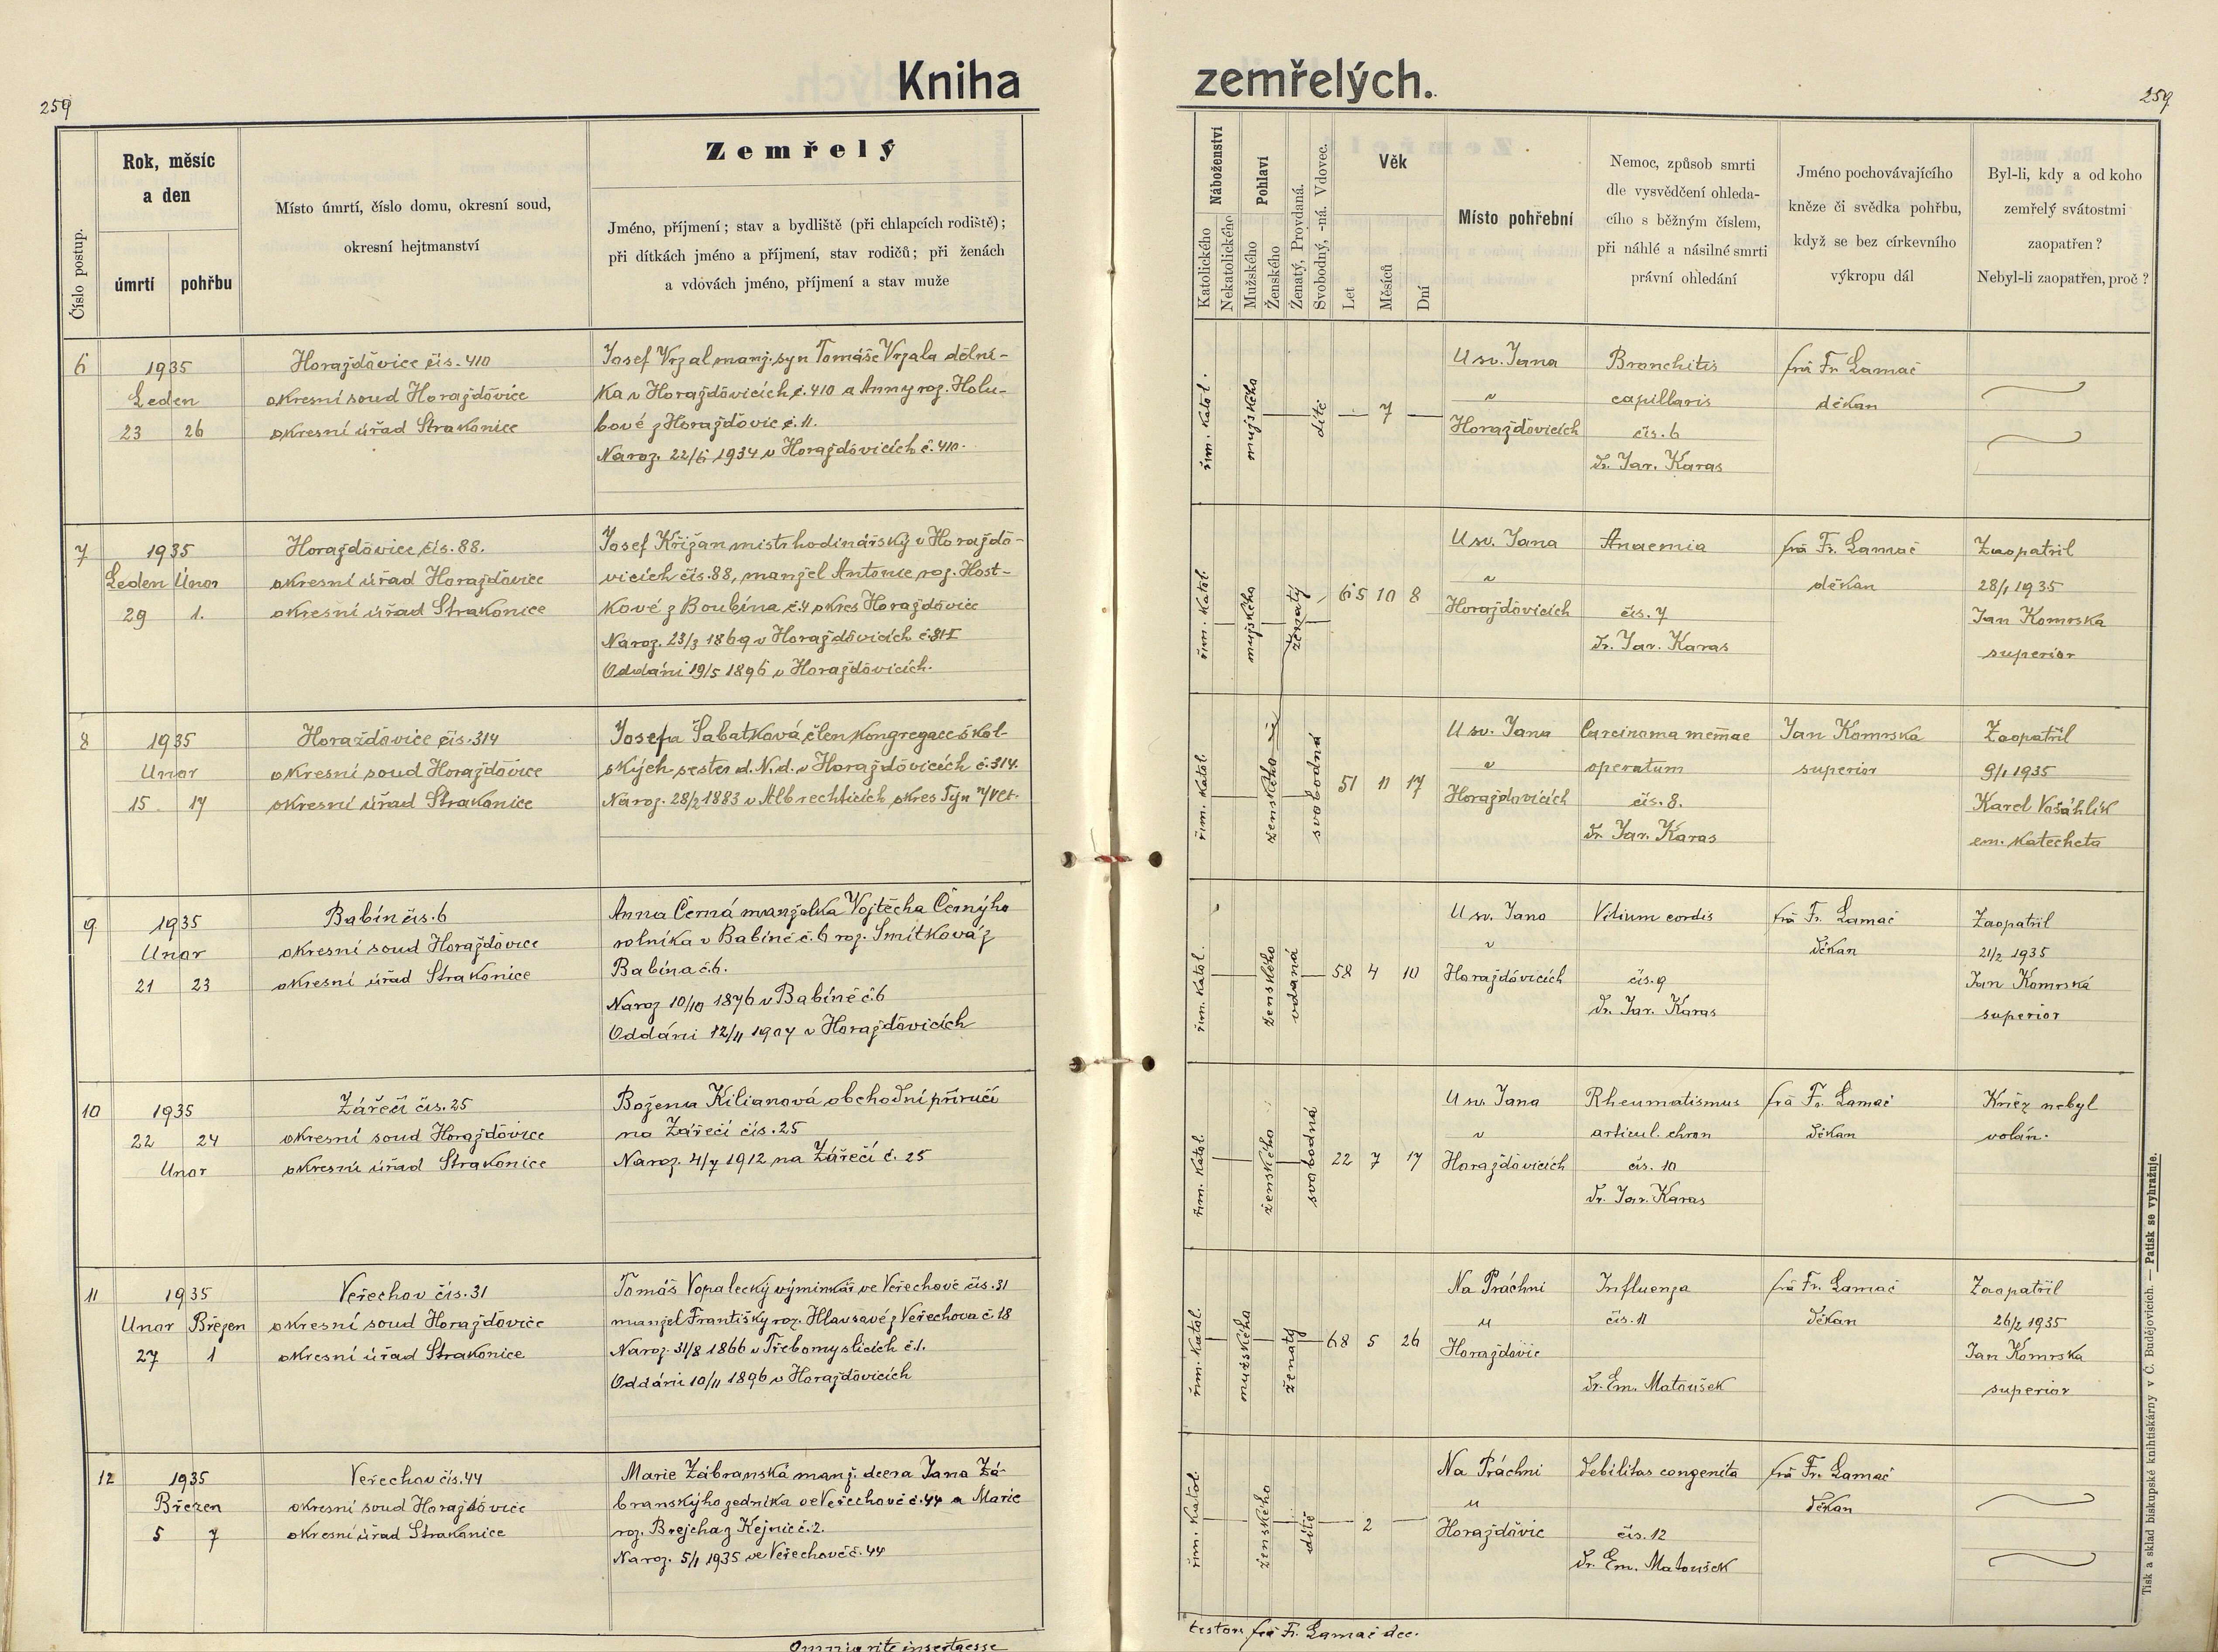 259
Kniha
zemřelých.
259
Číslo postup.
Rok, měsíc
a den
úmrtí
pohřbu
Místo úmrtí, číslo domu, okresní soud,
okresní hejtmanství
Zemřelý
Jméno, příjmení; stav a bydliště (při chlapcích rodiště);
při dítkách jméno a příjmení, stav rodičů; při ženách
a vdovách jméno, příjmení a stav muže
Náboženství
Katolického
Nekatolického
Pohlaví
Mužského
Ženského
Ženatý, Provdaná.
Svobodný, -ná. Vdovec.
Věk
Let
Měsíců
Dní
Místo pohřební
Nemoc, způsob smrti
dle vysvědčení ohleda-
cího s běžným číslem,
při náhlé a násilné smrti
právní ohledání
Jméno pochovávajícího
kněze či svědka pohřbu,
když se bez církevního
výkropu dál
Byl-li, kdy a od koho
zemřelý svátostmi
zaopatřen?
Nebyl-li zaopatřen, proč?
6
1935
Leden
23 26
Horažďovice čís. 410
okresní soud Horažďovice
okresní úřad Strakonice
Josef Vrzal manž. syn Tomáše Vrzala dělní-
ka v Horažďovicích č. 410 a Anny roz. Holu-
bové z Horažďovic č. 11.
Naroz. 22/6 1934 v Horažďovicích č. 410.
řím. katol.
mužského
dítě
7
U sv. Jana
v
Horažďovicích
Bronchitis
capillaris
čís. 6
Dr. Jar. Karas
frá Fr. Lamač
děkan
7
1935
Leden Únor
29 1.
Horažďovice, čís. 88.
okresní úřad Horažďovice
okresní úřad Strakonice
Josef Křižan mistr hodinářský v Horažďo-
vicích čís. 88, manžel Antonie roz. Host-
kové z Boubína č. 4 okres Horažďovice
Naroz. 23/3 1869 v Horažďovicích č. 81 I
Oddáni 19/5 1896 v Horažďovicích.
řím. katol.
mužského
ženatý
65 10 8
U sv. Jana
v
Horažďovicích
Anaemia
čís. 7
Dr. Jar. Karas
frá Fr. Lamač
děkan
Zaopatřil
28/1 1935
Jan Komrska
superior
8
1935
Únor
15 17
Horažďovice čís. 314
okresní soud Horažďovice
okresní úřad Strakonice
Josefa Šabatková, člen kongregace škol-
ských sester d. N. d. v Horažďovicích č. 314.
Naroz. 28/2 1883 v Albrechticích okres Týn n/Vlt.
řím. katol.
ženského
svobodná
51 11 17
U sv. Jana
v
Horažďovicích
Carcinoma memae
operatum
čís. 8.
Dr. Jar. Karas
Jan Komrska
superior
Zaopatřil
9/1 1935
Karel Vošáhlík
em. katecheta
9
1935
Únor
21 23
Babín čís. 6
okresní soud Horažďovice
okresní úřad Strakonice
Anna Černá manželka Vojtěcha Černýho
rolníka v Babíně č. 6 roz. Smítková z
Babína č. 6.
Naroz 10/10 1876 v Babíně č. 6
Oddáni 12/11 1907 v Horažďovicích
řím. katol.
ženského
vdaná
58 4 10
U sv. Jana
v
Horažďovicích
Vitium cordis
čís. 9
Dr. Jar. Karas
frá Fr. Lamač
děkan
Zaopatřil
21/2 1935
Jan Komrská
superior
10
1935
22 24
Únor
Zářečí čís. 25
okresní soud Horažďovice
okresní úřad Strakonice
Božena Kilianová obchodní příručí
na Zářečí čís. 25
Naroz. 4/7 1912 na Zářečí č. 25
řím. katol.
ženského
svobodná
22 7 17
U sv. Jana
v
Horažďovicích
Rheumatismus
articul. chron
čís. 10
Dr. Jar. Karas
frá Fr. Lamač
děkan
Kněz nebyl
volán.
11
1935
Únor Březen
27 1
Veřechov čís. 31
okresní soud Horažďovice
okresní úřad Strakonice
Tomáš Vopalecký výminkář ve Veřechově čís. 31
manžel Františky roz. Hlavsavé z Veřechova č. 18
Naroz. 31/8 1866 v Třebomyslicích č. 1.
Oddáni 10/11 1896 v Horažďovicích
řím. katol.
mužského
ženatý
68 5 26
Na Práchni
u
Horažďovic
Influenza
čís. 11
Dr. Em. Matoušek
frá Fr. Lamač
děkan
Zaopatřil
26/2 1935
Jan Komrska
superior
12
1935
Březen
5 7
Veřechov čís. 44
okresní soud Horažďovice
okresní úřad Strakonice
Marie Zábranská manž. dcera Jana Zá-
branskýho zedníka ve Veřechově č. 44 a Marie
roz. Brejcha z Kejnic č. 2.
Naroz. 5/1 1935 ve Veřechově č. 44
řím. katol.
ženského
dítě
2
Na Práchni
u
Horažďovic
Debilitas congenita
čís. 12
Dr. Em. Matoušek
frá Fr. Lamač
děkan
Omnia rite inserta esse
testor frá Fr. Lamač dec.
Tisk a sklad biskupské knihtiskárny v Č. Budějovicích. — Patisk se vyhražuje.